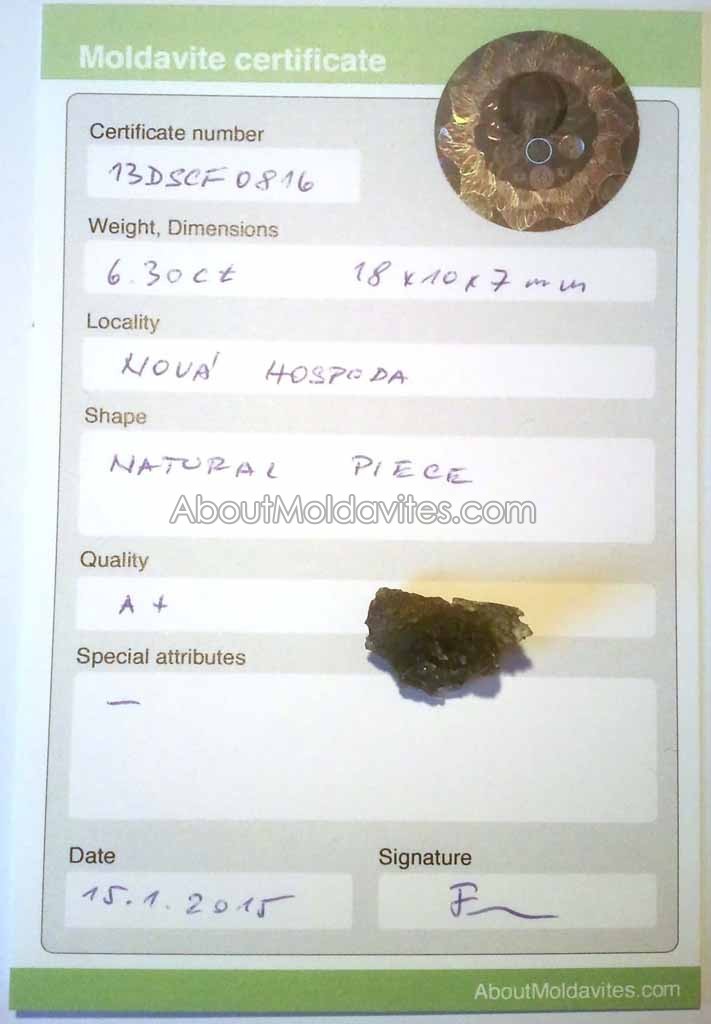 Moldavite certificate
Certificate number
13DSCF0816
Weight, Dimensions
6.30ct 18x10x7mm
Locality
NOVÁ HOSPODA
Shape
NATURAL PIECE
AboutMoldavites.com
Quality
A+
Special attributes
—
Date Signature
15.1.2015
AboutMoldavites.com